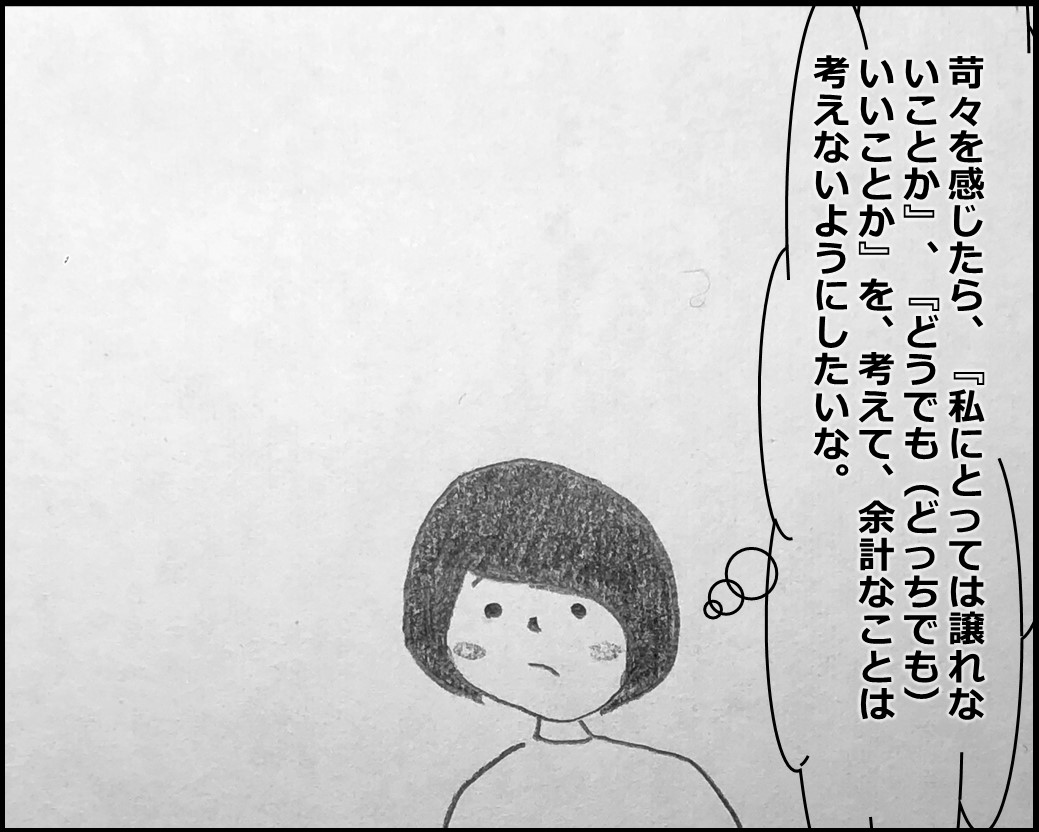 苛々を感じたら、『私にとっては譲れな
いことか』、『どうでも（どっちでも）
いいことか』を、考えて、余計なことは
考えないようにしたいな。